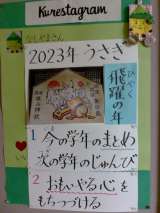 Kurestagram
2023年 うさぎ
ひやく
飛躍の年
1 今の学年のまとめ
次の学年のじゅんび
2 おもいやる心を
もちつづける